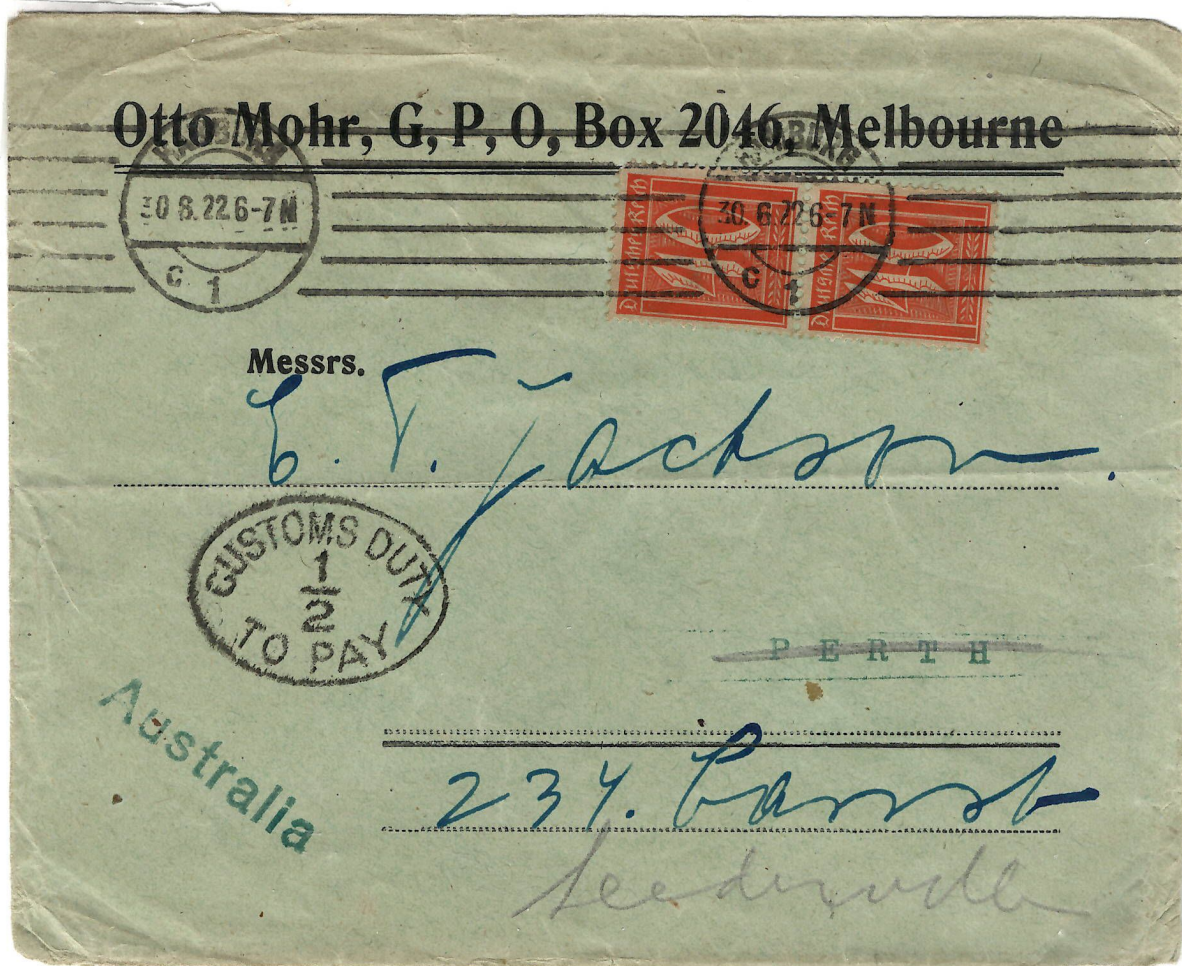 Otto Mohr, G, P, O, Box 2046, Melbourne
HARBURG
30.6.22.6-7N
C 1
HARBURG
30.6.22 6-7N
C 1
Deutsches Reich
Deutsches Reich
Messrs.
E. T. Jackson.
CUSTOMS DUTY
1
2
TO PAY
PERTH
Australia
234. Carr St
Leederville